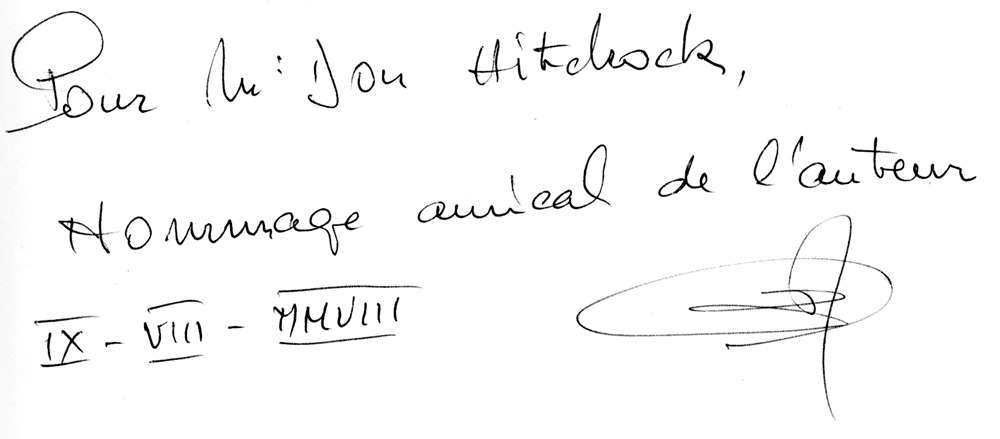 Pour Mr Don Hitchcock,
Hommage amical de l'auteur
IX - VIII - MMVIII